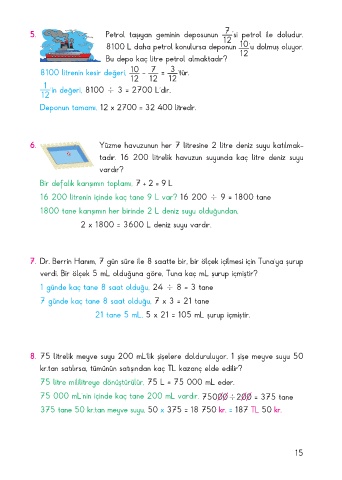 5. Petrol taşıyan geminin deposunun 7/12'si petrol ile doludur.
8100 L daha petrol konulursa deponun 10/12'u dolmuş oluyor.
Bu depo kaç litre petrol almaktadır?
8100 litrenin kesir değeri, 10/12 - 7/12 = 3/12'tür.
1/12'in değeri, 8100 ÷ 3 = 2700 L'dir.
Deponun tamamı, 12 x 2700 = 32 400 litredir.
6. Yüzme havuzunun her 7 litresine 2 litre deniz suyu katılmak-
tadır. 16 200 litrelik havuzun suyunda kaç litre deniz suyu
vardır?
Bir defalık karışımın toplamı, 7 + 2 = 9 L
16 200 litrenin içinde kaç tane 9 L var? 16 200 ÷ 9 = 1800 tane
1800 tane karışımın her birinde 2 L deniz suyu olduğundan,
2 x 1800 = 3600 L deniz suyu vardır.
7. Dr. Berrin Hanım, 7 gün süre ile 8 saatte bir, bir ölçek içilmesi için Tuna'ya şurup
verdi. Bir ölçek 5 mL olduğuna göre, Tuna kaç mL şurup içmiştir?
1 günde kaç tane 8 saat olduğu, 24 ÷ 8 = 3 tane
7 günde kaç tane 8 saat olduğu, 7 x 3 = 21 tane
21 tane 5 mL, 5 x 21 = 105 mL şurup içmiştir.
8. 75 litrelik meyve suyu 200 mL'lik şişelere dolduruluyor. 1 şişe meyve suyu 50
kr.tan satılırsa, tümünün satışından kaç TL kazanç elde edilir?
75 litre mililitreye dönüştürülür. 75 L = 75 000 mL eder.
75 000 mL'nin içinde kaç tane 200 mL vardır. 75000 ÷ 200 = 375 tane
375 tane 50 kr.tan meyve suyu, 50 x 375 = 18 750 kr. = 187 TL 50 kr.
15